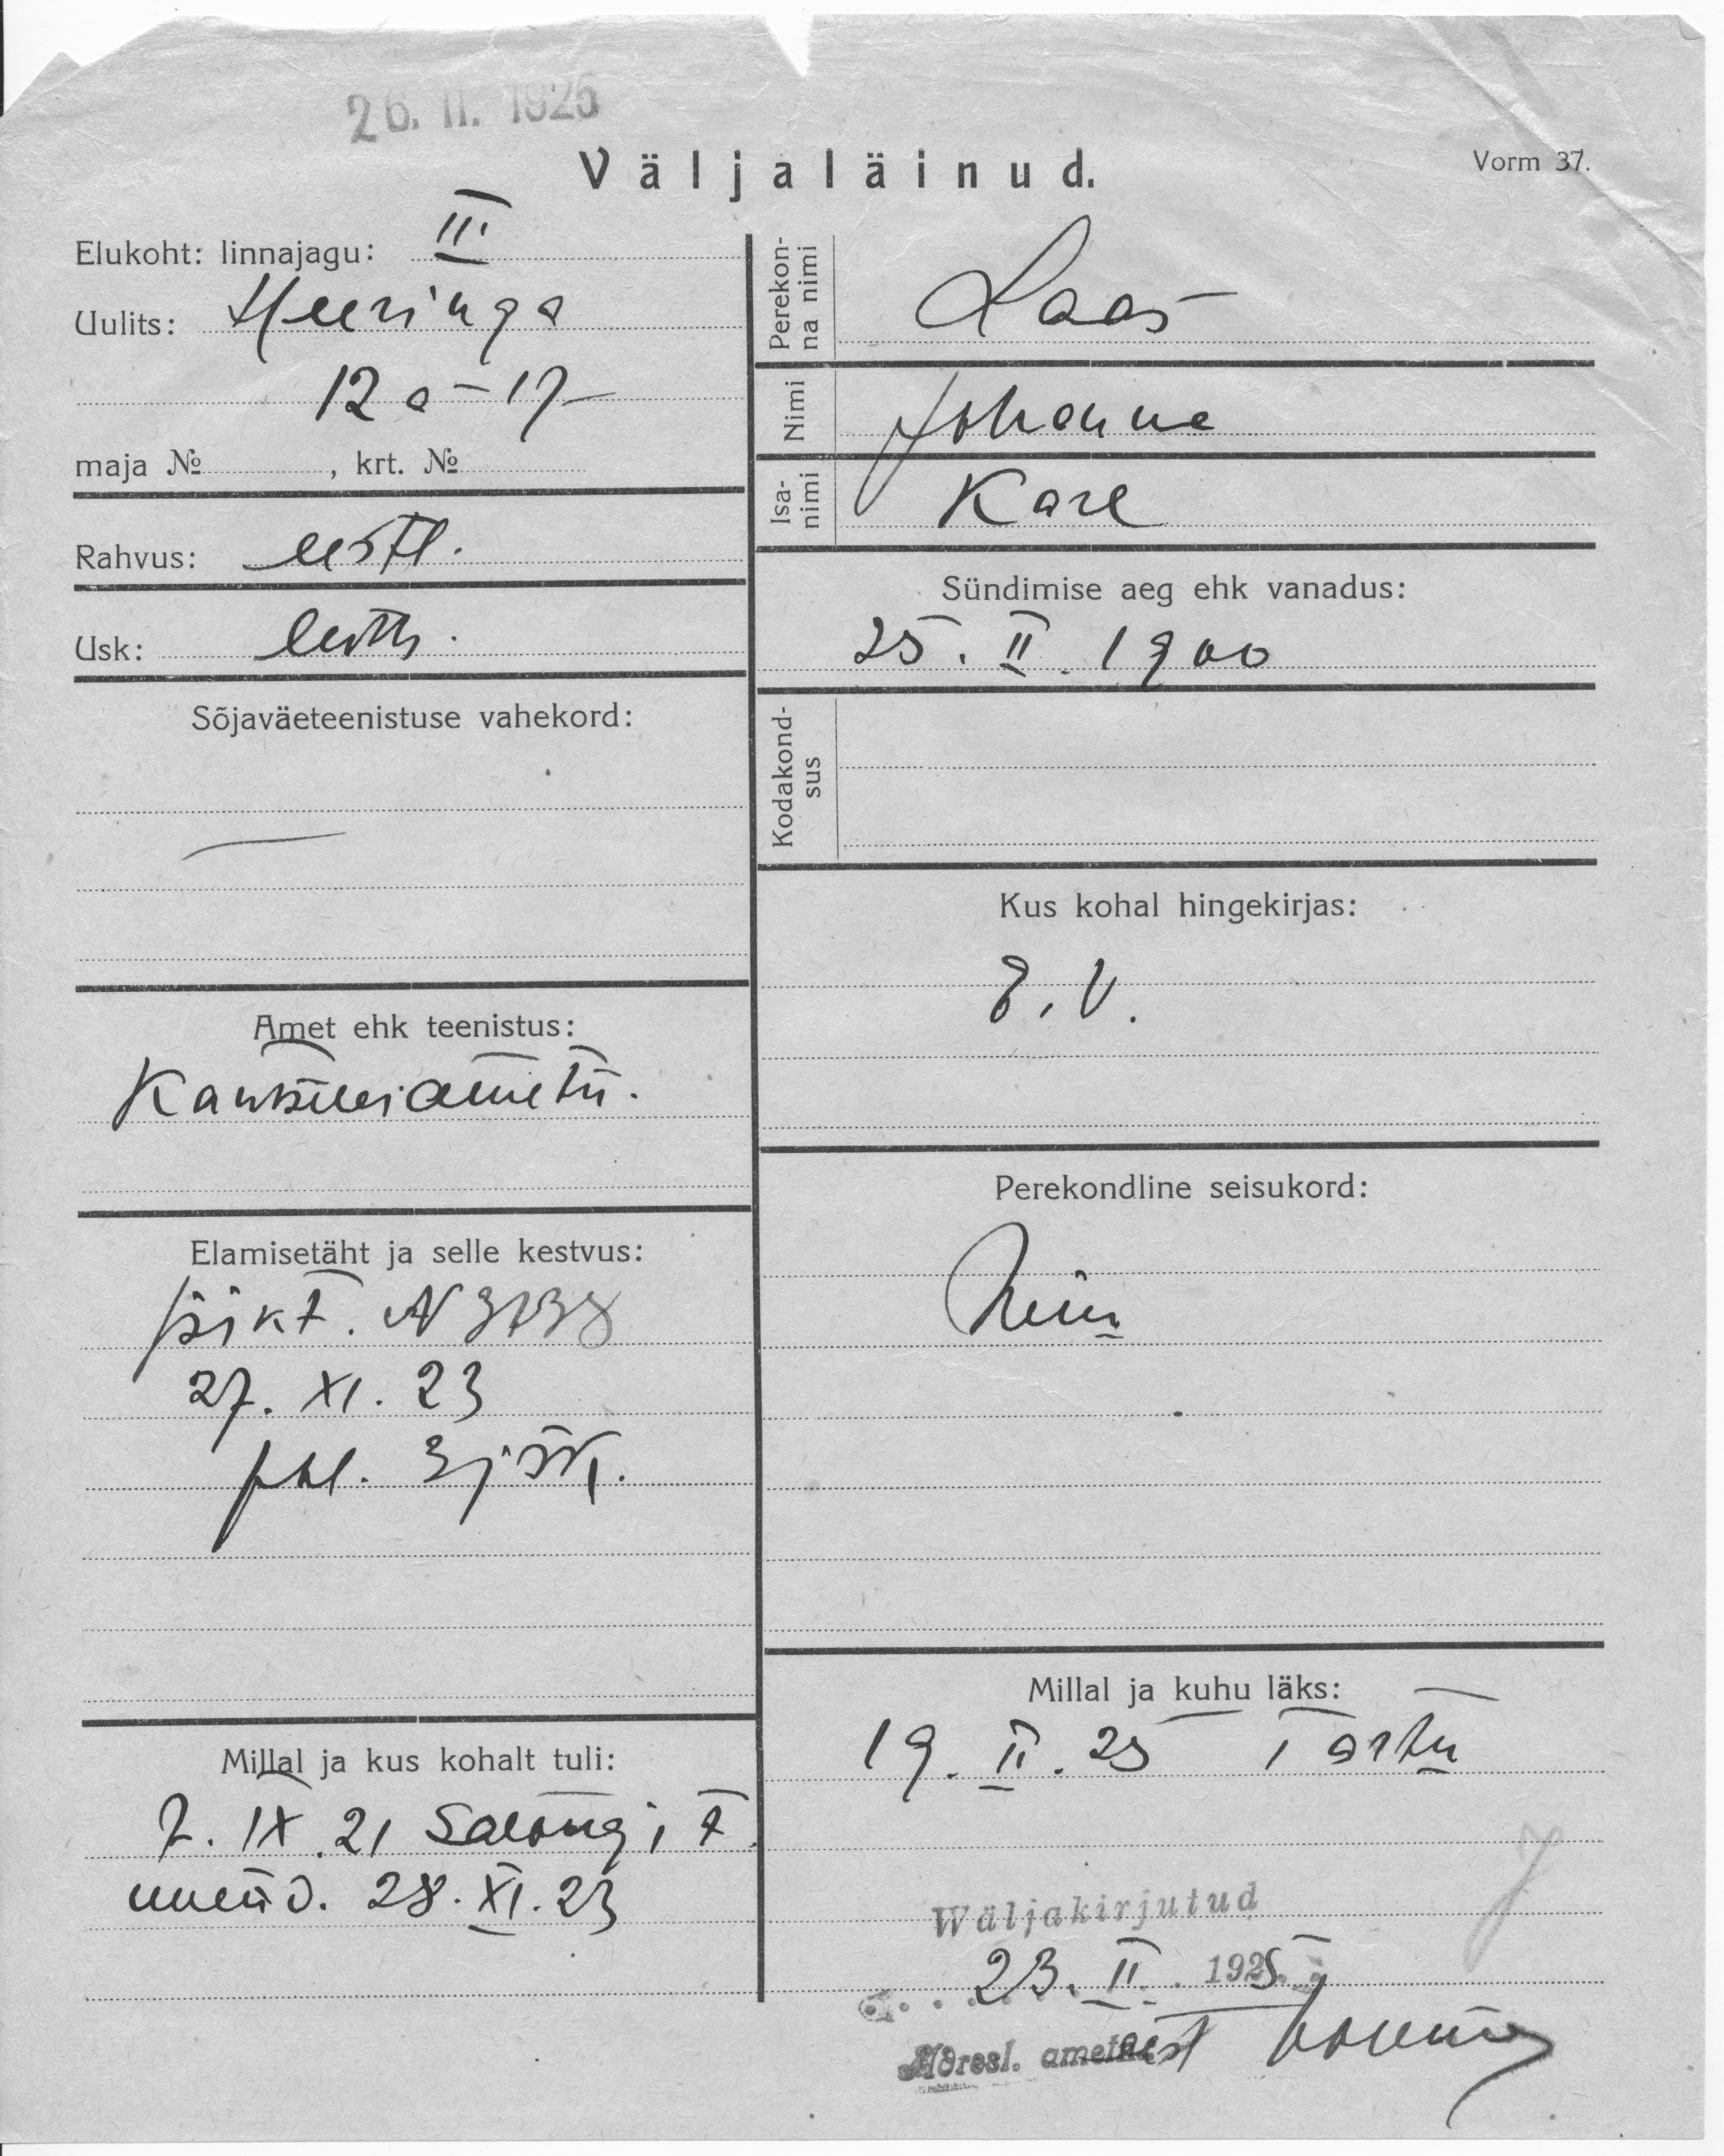 26. II. 1925
Väljaläinud.
Vorm 37.
Elukoht: linnajagu: III
Uulits: Heeringa
12a-17
maja №, krt. №
Rahvus: eestl.
Usk: luth.
Sõjaväeteenistuse vahekord:
—
Amet ehk teenistus:
Kantseleiametn.
Elamisetäht ja selle kestvus:
isikt. N 3738
27. XI. 23
Millal ja kus kohalt tuli:
7. IX. 21
uuend. 28. XI. 23
Perekonna nimi
Laas
Nimi
Johanna
Isanimi
Karl
Sündimise aeg ehk vanadus:
25. II. 1900
Kodakondsus
Kus kohal hingekirjas:
E. V.
Perekondline seisukord:
Neiu
Millal ja kuhu läks:
19. II. 25 Tartu
Wäljakirjutud
23. II. 1925
Adresl. ametnest